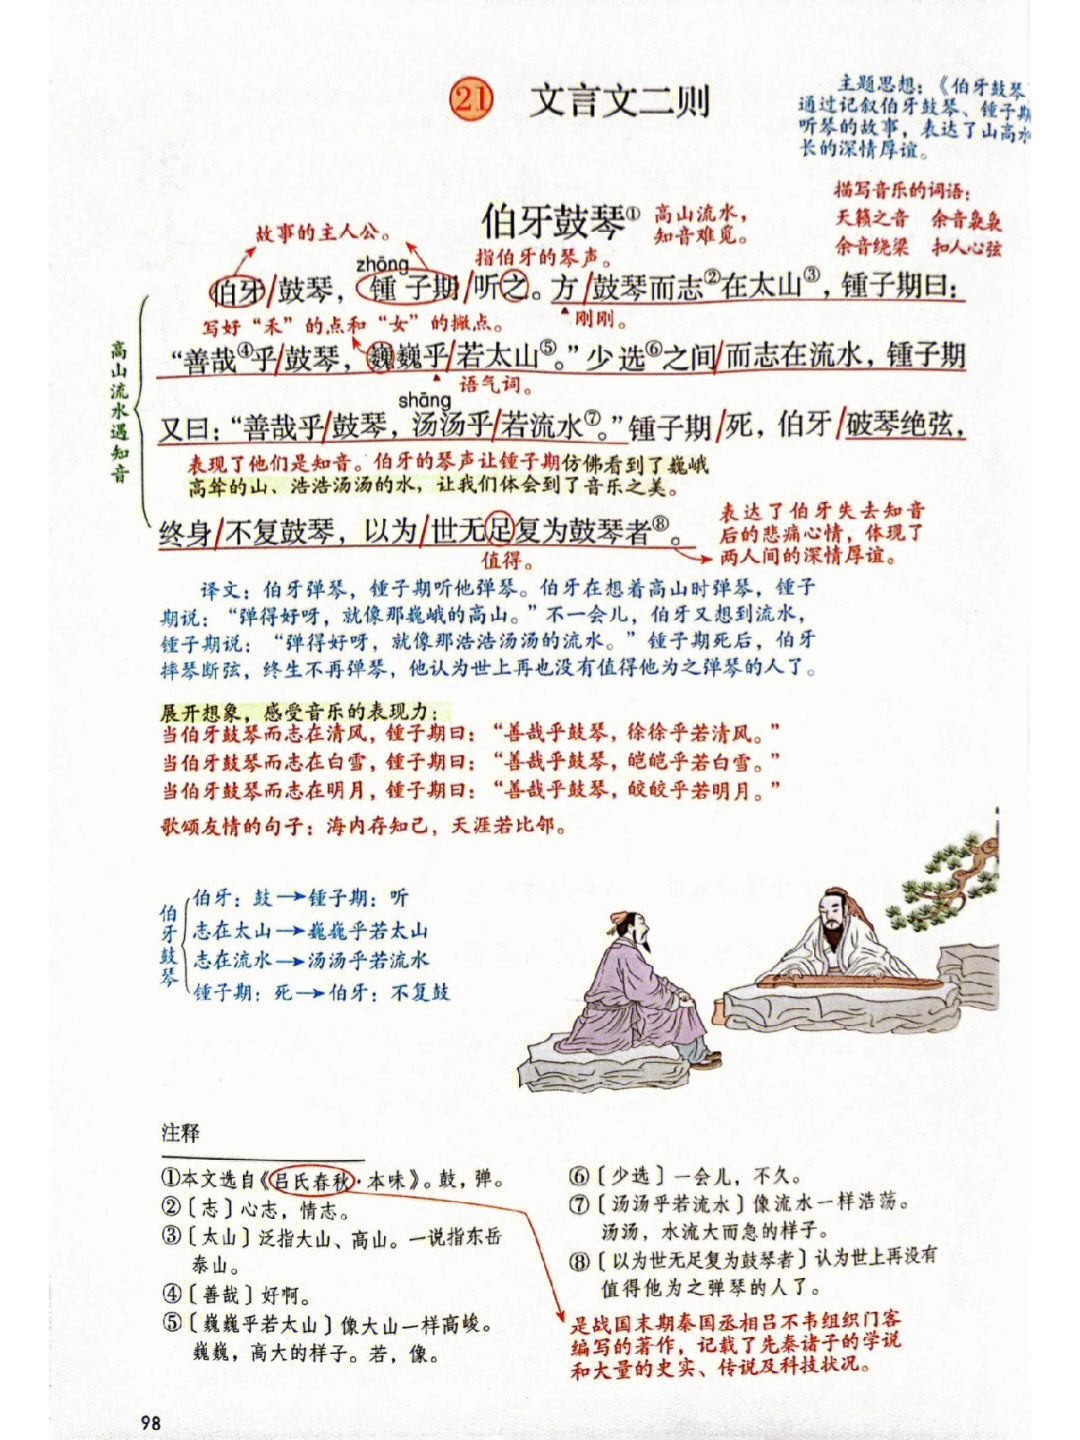 21 文言文二则
主题思想：《伯牙鼓琴
通过记叙伯牙鼓琴、锺子期
听琴的故事，表达了山高水
长的深情厚谊。
描写音乐的词语：
天籁之音 余音袅袅
余音绕梁 扣人心弦
伯牙鼓琴①
高山流水，
知音难觅。
故事的主人公。
指伯牙的琴声。
zhōng
伯牙/鼓琴，锺子期/听之。方/鼓琴而志②在太山③，锺子期曰：
写好“禾”的点和“女”的撇点。
刚刚。
“善哉④乎/鼓琴，巍巍乎/若太山⑤。”少选⑥之间/而志在流水，锺子期
语气词。
shāng
又曰：“善哉乎/鼓琴，汤汤乎/若流水⑦。”锺子期/死，伯牙/破琴绝弦，
表现了他们是知音。伯牙的琴声让锺子期仿佛看到了巍峨
高耸的山、浩浩汤汤的水，让我们体会到了音乐之美。
终身/不复鼓琴，以为/世无足复为鼓琴者⑧。
值得。
表达了伯牙失去知音
后的悲痛心情，体现了
两人间的深情厚谊。
高山流水遇知音
译文：伯牙弹琴，锺子期听他弹琴。伯牙在想着高山时弹琴，锺子
期说：“弹得好呀，就像那巍峨的高山。”不一会儿，伯牙又想到流水，
锺子期说：“弹得好呀，就像那浩浩汤汤的流水。”锺子期死后，伯牙
摔琴断弦，终生不再弹琴，他认为世上再也没有值得他为之弹琴的人了。
展开想象，感受音乐的表现力：
当伯牙鼓琴而志在清风，锺子期曰：“善哉乎鼓琴，徐徐乎若清风。”
当伯牙鼓琴而志在白雪，锺子期曰：“善哉乎鼓琴，皑皑乎若白雪。”
当伯牙鼓琴而志在明月，锺子期曰：“善哉乎鼓琴，皎皎乎若明月。”
歌颂友情的句子：海内存知己，天涯若比邻。
伯牙鼓琴
伯牙：鼓→锺子期：听
志在太山→巍巍乎若太山
志在流水→汤汤乎若流水
锺子期：死→伯牙：不复鼓
注释
①本文选自《吕氏春秋·本味》。鼓，弹。
②〔志〕心志，情志。
③〔太山〕泛指大山、高山。一说指东岳
泰山。
④〔善哉〕好啊。
⑤〔巍巍乎若太山〕像大山一样高峻。
巍巍，高大的样子。若，像。
⑥〔少选〕一会儿，不久。
⑦〔汤汤乎若流水〕像流水一样浩荡。
汤汤，水流大而急的样子。
⑧〔以为世无足复为鼓琴者〕认为世上再没有
值得他为之弹琴的人了。
是战国末期秦国丞相吕不韦组织门客
编写的著作，记载了先秦诸子的学说
和大量的史实、传说及科技状况。
98